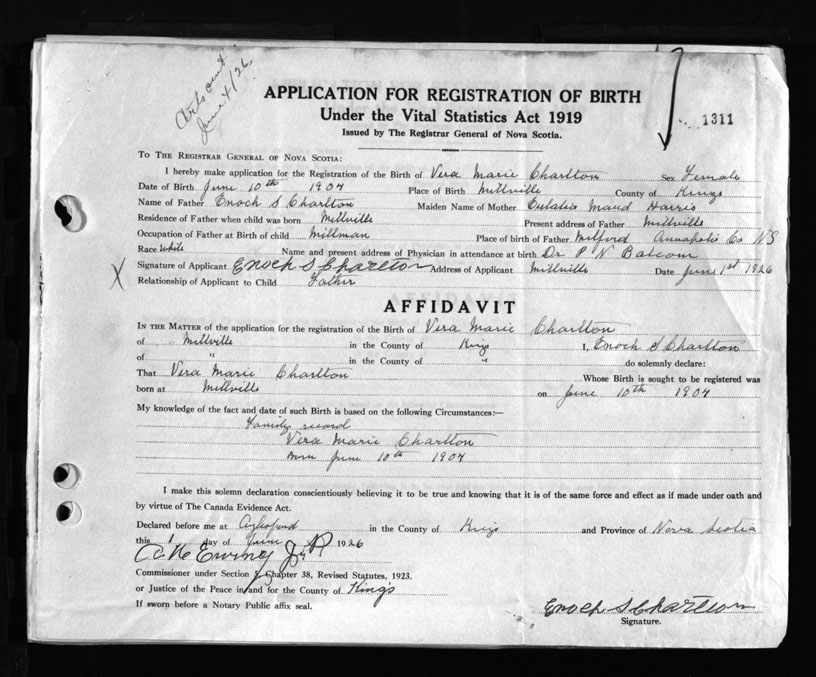 June 4/26
APPLICATION FOR REGISTRATION OF BIRTH
Under the Vital Statistics Act 1919
1311
Issued by The Registrar General of Nova Scotia.
TO THE REGISTRAR GENERAL OF NOVA SCOTIA:
I hereby make application for the Registration of the Birth of Vera Marie Charlton Sex Female
Date of Birth June 10th 1904 Place of Birth Millville County of Kings
Name of Father Enoch S Charlton Maiden Name of Mother Eulalie Maud Harris
Residence of Father when child was born Millville Present address of Father Millville
Occupation of Father at Birth of child Millman Place of birth of Father Milford Annapolis Co NS
Race White Name and present address of Physician in attendance at birth Dr P N Balcom
Signature of Applicant Enoch S Charlton Address of Applicant Millville Date June 1st 1926
X Relationship of Applicant to Child Father
AFFIDAVIT
IN THE MATTER of the application for the registration of the Birth of Vera Marie Charlton
of Millville in the County of Kings I, Enoch S Charlton
of " in the County of " do solemnly declare:
That Vera Marie Charlton Whose Birth is sought to be registered was
born at Millville on June 10th 1904
My knowledge of the fact and date of such Birth is based on the following Circumstances:—
Family record
Vera Marie Charlton
Born June 10th 1904
I make this solemn declaration conscientiously believing it to be true and knowing that it is of the same force and effect as if made under oath and
by virtue of The Canada Evidence Act.
Declared before me at Aylesford in the County of Kings and Province of Nova Scotia
this 1 day of June 1926
Ewing J.P.
Commissioner under Section 5, Chapter 38, Revised Statutes, 1923.
or Justice of the Peace in and for the County of King's
If sworn before a Notary Public affix seal.
Enoch S Charlton
Signature.